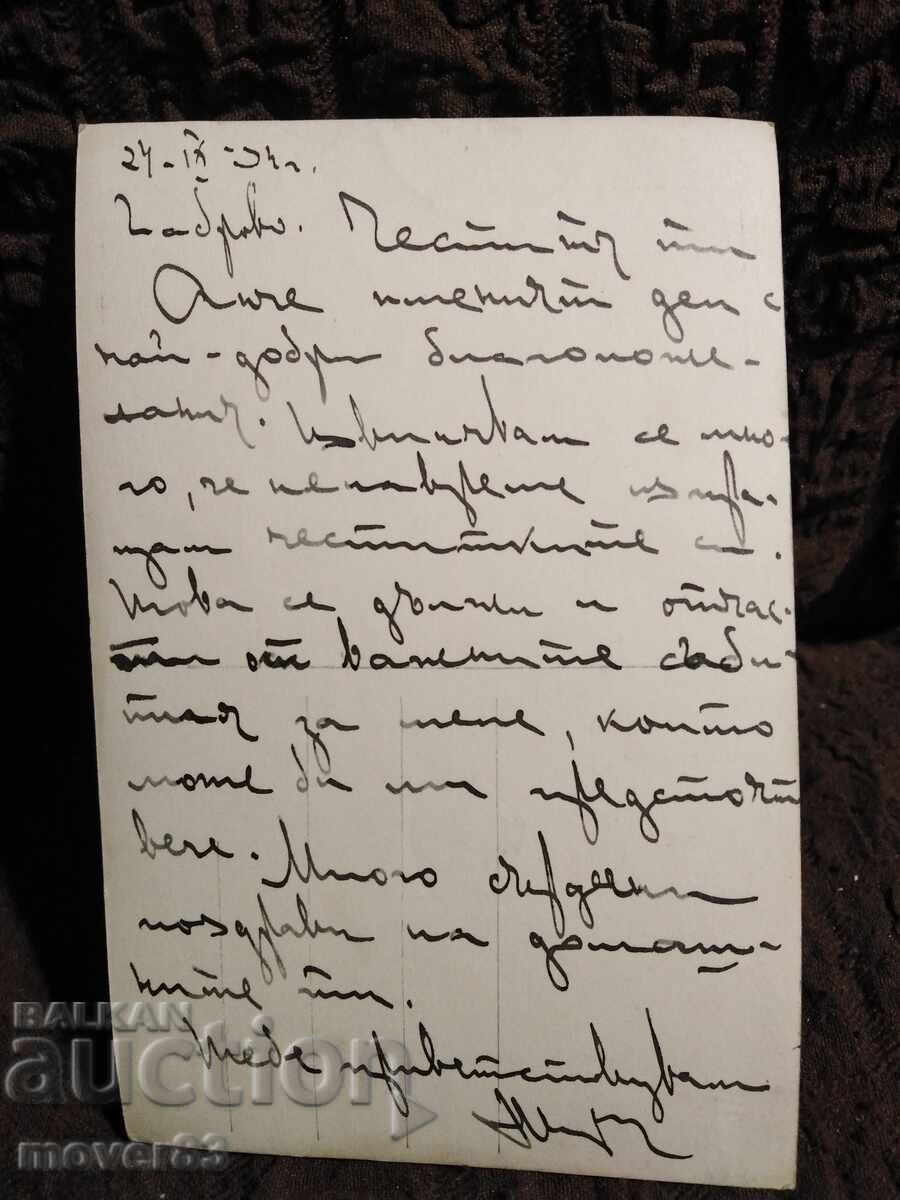 24-IX-34 г.
Габрово. Честитя ти
Анче именият ден с
най-добри благопоже-
лания. Извинявам се мно-
го, че ненавреме изпра-
щам честитките си.
Това се дължи и отчас-
ти от важните съби-
тия за мене, които
може би ми предстоят
вече. Много сърдечни
поздрави на домаш-
ните ти.
Тебе приветствувам
BALKAN
auction
mover83